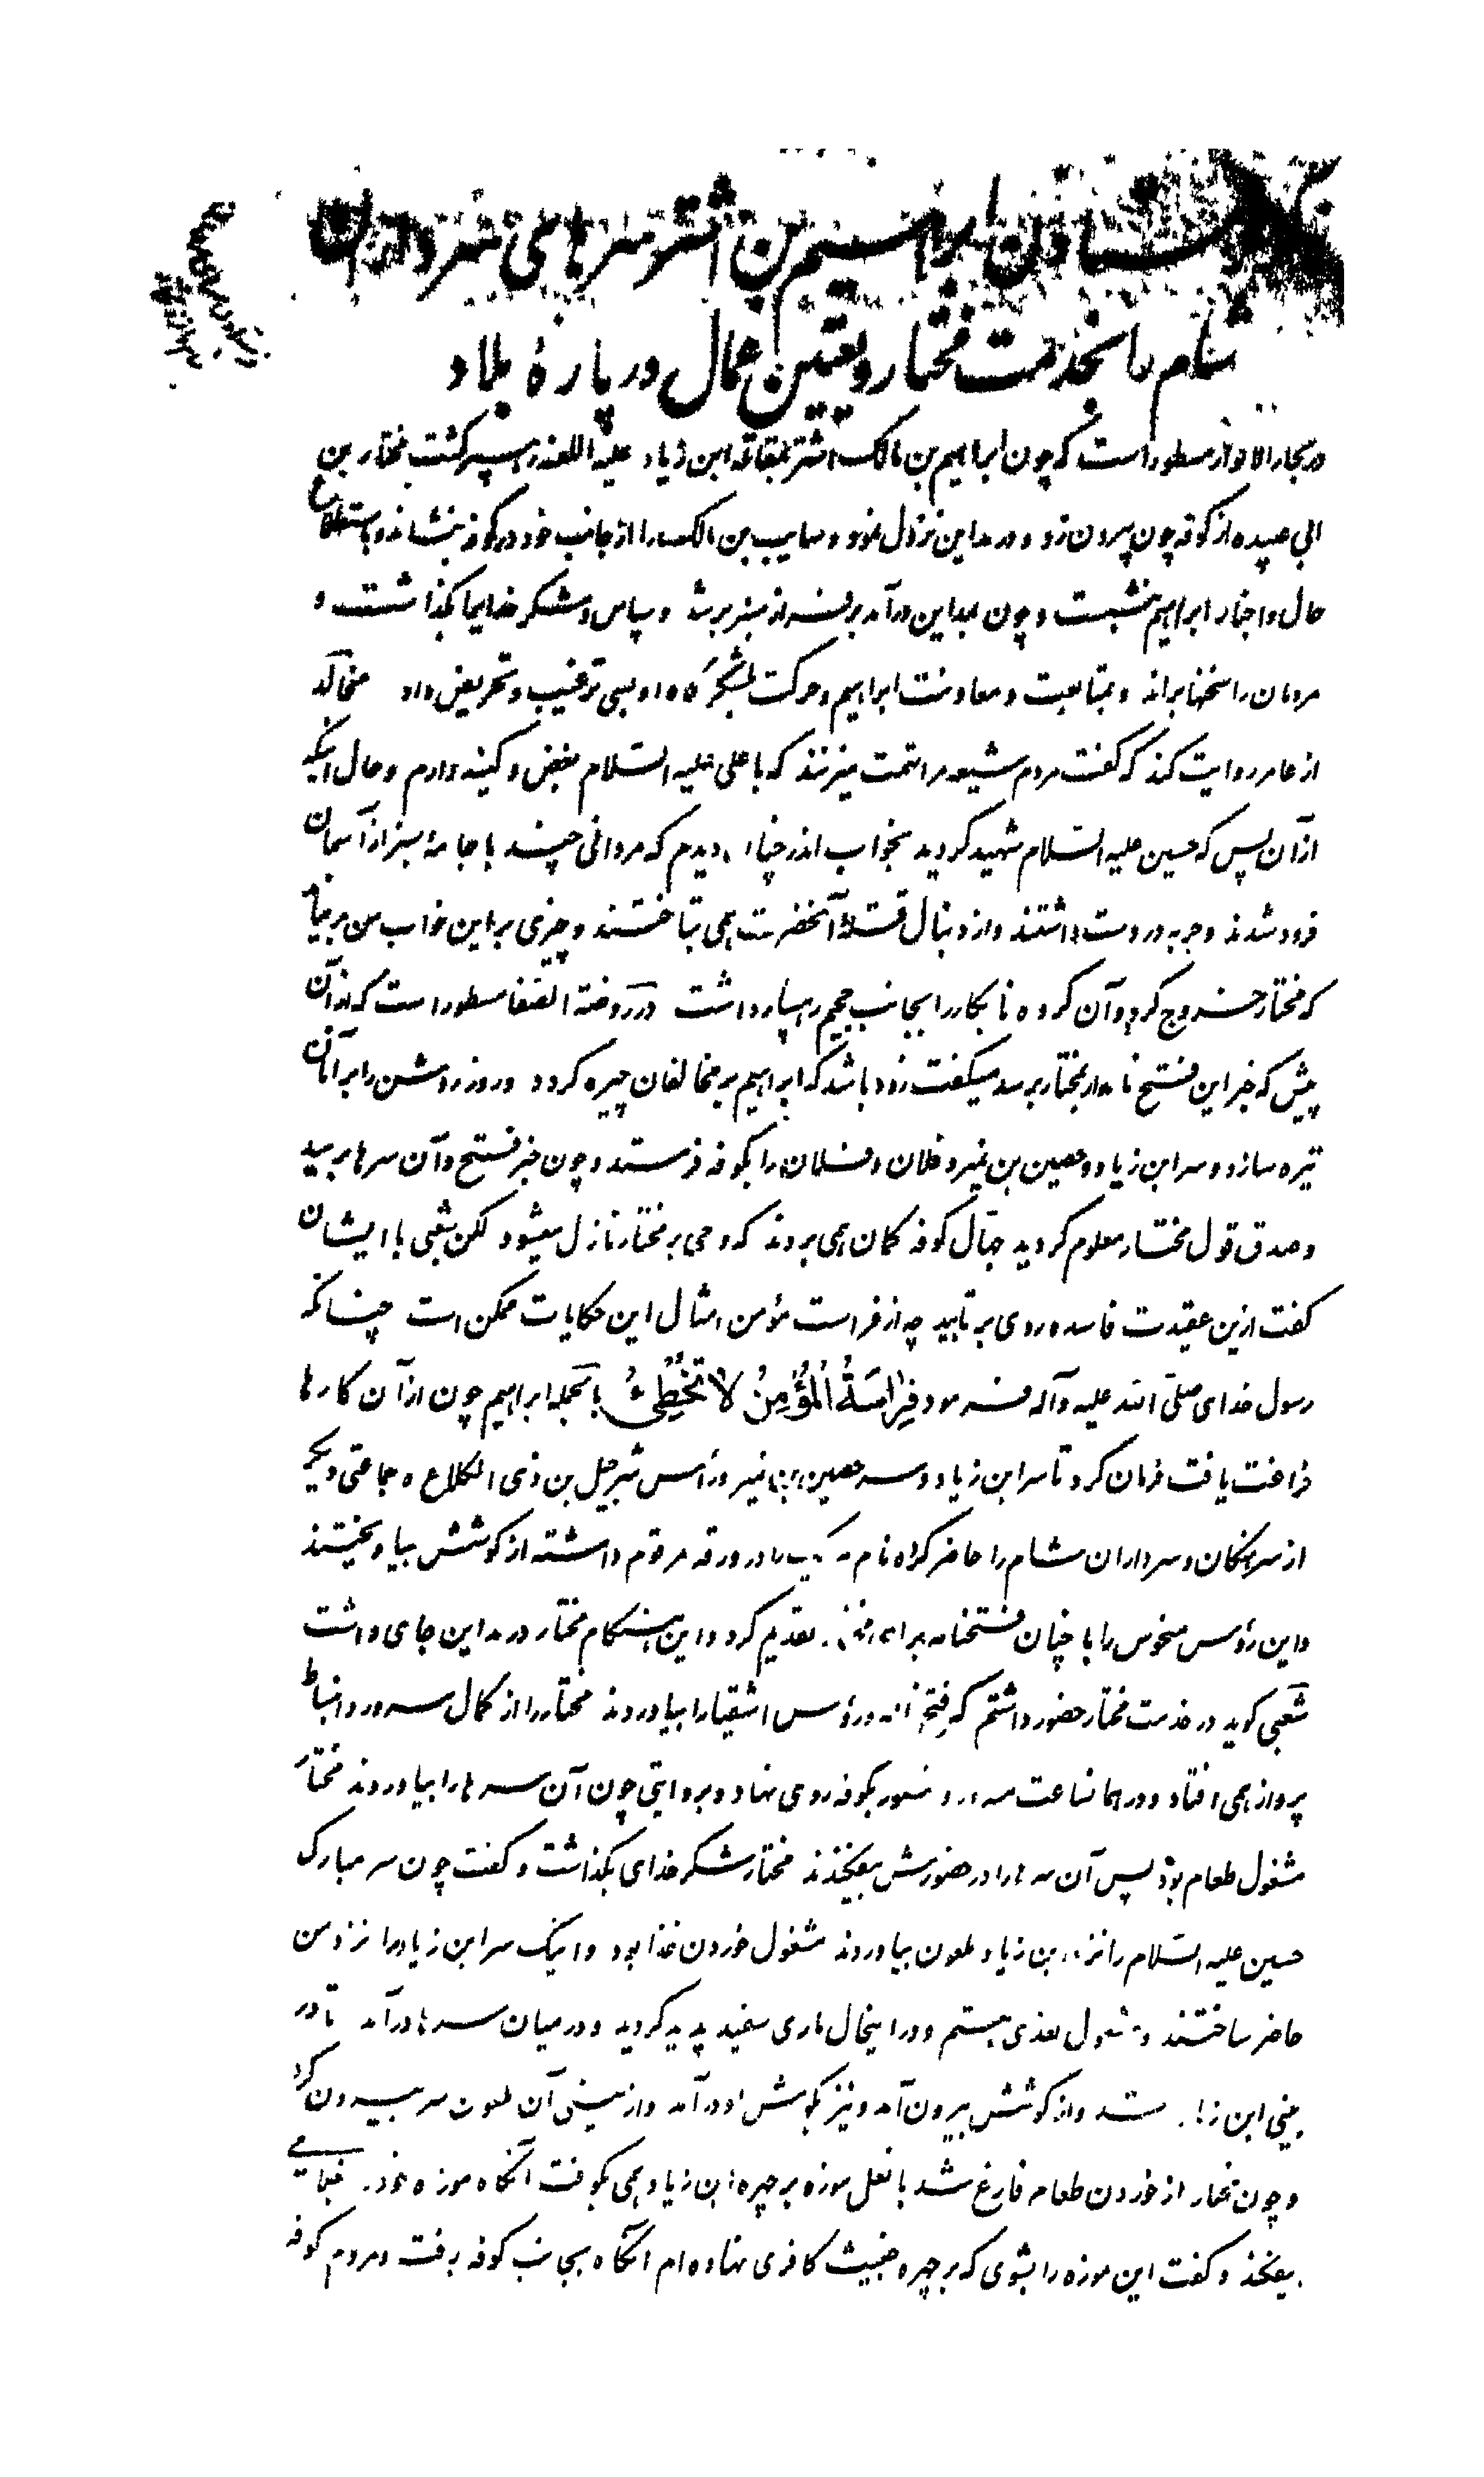 فرستادن ابراهیم بن اشتر سرهای سرداران
شام را بخدمت مختار و تعیین عمال در پارهٔ بلاد
در بحارالانوار مسطور است که چون ابراهیم بن مالک اشتر بمقاتله ابن زیاد علیه اللعنه رهسپر گشت مختار بن
ابی عبیده از کوفه چون بیرون زد و در مداین نزول نمود و سایب بن مالک را از جانب خود در کوفه بنشاند و باستطلاع
حال و اخبار ابراهیم بنشست و چون بمداین درآمد بر فراز منبر برشد و سپاس و شکر خدایرا بگذاشت و
مردمان را سخنها براند و بمتابعت و معاونت ابراهیم و حرکت بلشگرگاه او بسی ترغیب و تحریض داد مجالد
از عامر روایت کند که گفت مردم شیعه مرا تهمت میزنند که با علی علیه السّلام بغض و کینه دارم و حال اینکه
از آن پس که حسین علیه السّلام شهید گردید بخواب اندر چنان دیدم که مردانی چند با جامهٔ سبز از آسمان
فرود شدند و حربه در دست داشتند و از دنبال قتلهٔ آنحضرت همی تاختند و چیزی بر این خواب من برنیامد
که مختار خروج کرد و آن گروه نابکار را بجانب جحیم رهسپار داشت در روضة الصفا مسطور است که از آن
پیش که خبر این فتح نامدار بمختار برسد میگفت زود باشد که ابراهیم بر مخالفان چیره گردد و روز روشن را بر آنان
تیره سازد و سر ابن زیاد و حصین بن نمیر و فلان و فلان را بکوفه فرستد و چون خبر فتح و آن سرها برسید
و صدق قول مختار معلوم گردید جهّال کوفه گمان همی بردند که وحی بر مختار نازل میشود لکن شعبی با ایشان
گفت ازین عقیدت فاسد روی برتابید چه از فراست مؤمن امثال این حکایات ممکن است چنانکه
رسول خدای صلّی الله علیه و آله فرمود فِرٰاسَةُ الْمُؤْمِنُ لاٰ تُخْطِیُٔ بالجمله ابراهیم چون از آن کارها
فراغت یافت فرمان کرد تا سر ابن زیاد و سر حصین بن نمیر و رأس شرحبیل بن ذی الکلاع و جماعتی دیگر
از سرهنگان و سرداران شام را حاضر کرده نام هر یک را در ورقه مرقوم داشته از گوشش بیاویختند
و این رؤس منحوس را با چنان فتحنامه برای مختار تقدیم کرد و این هنگام مختار در مداین جای داشت
شعبی گوید در خدمت مختار حضور داشتم که فتح نامه و رؤس اشقیا را بیاوردند مختار را از کمال سرور و انبساط
پرواز همی افتاد و در همانساعت مسرور و منصور بکوفه روی نهاد و بروایتی چون آن سرها را بیاوردند مختار
مشغول طعام بود پس آن سرها را در حضورش بیفکندند مختار شکر خدای بگذاشت و گفت چون سر مبارک
حسین علیه السّلام را نزد ابن زیاد ملعون بیاوردند مشغول خوردن غذا بود و اینک سر ابن زیاد را نزد من
حاضر ساختند و مشغول بغذی هستم و در اینحال ماری سفید پدید گردید و در میان سرها درآمد تا در
بینی ابن زیاد شد و از گوشش بیرون آمد و نیز بگوشش اندر آمد و از بینی آن ملعون سر بیرون کرد
و چون مختار از خوردن طعام فارغ شد با نعل موزه بر چهره ابن زیاد همی بکوفت آنگاه موزه خود بغلامی
بیفکند و گفت این موزه را بشوی که بر چهره خبیث کافری نهاده‌ام آنگاه بجانب کوفه برفت و مردم کوفه